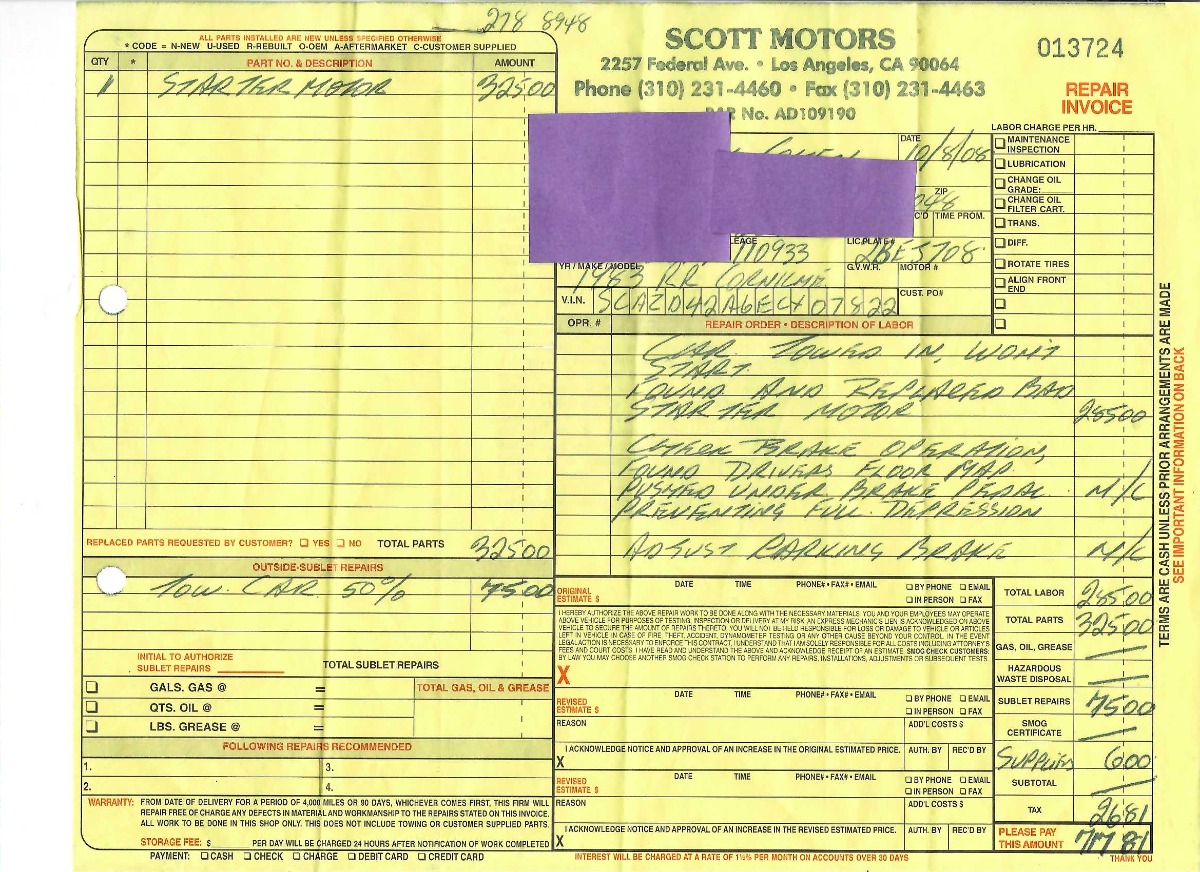 278 8948
ALL PARTS INSTALLED ARE NEW UNLESS SPECIFIED OTHERWISE
* CODE = N-NEW U-USED R-REBUILT O-OEM A-AFTERMARKET C-CUSTOMER SUPPLIED
QTY * PART NO. & DESCRIPTION AMOUNT
1 STARTER MOTOR 325 00
REPLACED PARTS REQUESTED BY CUSTOMER? YES NO TOTAL PARTS 325 00
OUTSIDE-SUBLET REPAIRS
TOW CAR 50% 75 00
INITIAL TO AUTHORIZE
SUBLET REPAIRS
TOTAL SUBLET REPAIRS
GALS. GAS @ = TOTAL GAS, OIL & GREASE
QTS. OIL @ =
LBS. GREASE @ =
FOLLOWING REPAIRS RECOMMENDED
1. 3.
2. 4.
WARRANTY: FROM DATE OF DELIVERY FOR A PERIOD OF 4,000 MILES OR 90 DAYS, WHICHEVER COMES FIRST, THIS FIRM WILL
REPAIR FREE OF CHARGE ANY DEFECTS IN MATERIAL AND WORKMANSHIP TO THE REPAIRS STATED ON THIS INVOICE.
ALL WORK TO BE DONE IN THIS SHOP ONLY. THIS DOES NOT INCLUDE TOWING OR CUSTOMER SUPPLIED PARTS.
STORAGE FEE: $ PER DAY WILL BE CHARGED 24 HOURS AFTER NOTIFICATION OF WORK COMPLETED
PAYMENT: CASH CHECK CHARGE DEBIT CARD CREDIT CARD
SCOTT MOTORS
2257 Federal Ave. • Los Angeles, CA 90064
Phone (310) 231-4460 • Fax (310) 231-4463
No. AD109190
013724
REPAIR
INVOICE
LABOR CHARGE PER HR.
DATE 10/8/08
ZIP
TIME PROM.
110933
LIC.PLATE # 2BEJ708
YR / MAKE / MODEL G.V.W.R. MOTOR #
1983 RR CORNICHE
V.I.N. SCAZD42A6ECX07822 CUST. PO#
MAINTENANCE
INSPECTION
LUBRICATION
CHANGE OIL
GRADE:
CHANGE OIL
FILTER CART.
TRANS.
DIFF.
ROTATE TIRES
ALIGN FRONT
END
OPR. # REPAIR ORDER • DESCRIPTION OF LABOR
CAR TOWED IN, WON'T
START.
FOUND AND REPLACED BAD
STARTER MOTOR 285 00
CHECK BRAKE OPERATION,
FOUND DRIVERS FLOOR MAT
PUSHED UNDER BRAKE PEDAL N/C
PREVENTING FULL DEPRESSION
ADJUST PARKING BRAKE N/C
ORIGINAL
ESTIMATE $ DATE TIME PHONE# • FAX# • EMAIL BY PHONE EMAIL
IN PERSON FAX
I HEREBY AUTHORIZE THE ABOVE REPAIR WORK TO BE DONE ALONG WITH THE NECESSARY MATERIALS. YOU AND YOUR EMPLOYEES MAY OPERATE
ABOVE VEHICLE FOR PURPOSES OF TESTING, INSPECTION OR DELIVERY AT MY RISK. AN EXPRESS MECHANIC'S LIEN IS ACKNOWLEDGED ON ABOVE
VEHICLE TO SECURE THE AMOUNT OF REPAIRS THERETO. YOU WILL NOT BE HELD RESPONSIBLE FOR LOSS OR DAMAGE TO VEHICLE OR ARTICLES
LEFT IN VEHICLE IN CASE OF FIRE, THEFT, ACCIDENT, DYNAMOMETER TESTING OR ANY OTHER CAUSE BEYOND YOUR CONTROL. IN THE EVENT
LEGAL ACTION IS NECESSARY TO ENFORCE THIS CONTRACT, I UNDERSTAND THAT I AM SOLELY RESPONSIBLE FOR ALL COSTS INCLUDING ATTORNEY'S
FEES AND COURT COSTS. I HAVE READ AND UNDERSTAND THE ABOVE AND ACKNOWLEDGE RECEIPT OF AN ESTIMATE. SMOG CHECK CUSTOMERS:
BY LAW YOU MAY CHOOSE ANOTHER SMOG CHECK STATION TO PERFORM ANY REPAIRS, INSTALLATIONS, ADJUSTMENTS OR SUBSEQUENT TESTS.
X
REVISED
ESTIMATE $ DATE TIME PHONE# • FAX# • EMAIL BY PHONE EMAIL
IN PERSON FAX
REASON ADD'L COSTS $
I ACKNOWLEDGE NOTICE AND APPROVAL OF AN INCREASE IN THE ORIGINAL ESTIMATED PRICE. AUTH. BY REC'D BY
X
REVISED
ESTIMATE $ DATE TIME PHONE# • FAX# • EMAIL BY PHONE EMAIL
IN PERSON FAX
REASON ADD'L COSTS $
I ACKNOWLEDGE NOTICE AND APPROVAL OF AN INCREASE IN THE REVISED ESTIMATED PRICE. AUTH. BY REC'D BY
X
INTEREST WILL BE CHARGED AT A RATE OF 1½% PER MONTH ON ACCOUNTS OVER 30 DAYS
TOTAL LABOR 285 00
TOTAL PARTS 325 00
GAS, OIL, GREASE
HAZARDOUS
WASTE DISPOSAL
SUBLET REPAIRS 75 00
SMOG
CERTIFICATE
SUPPLIES 6 00
SUBTOTAL
TAX 26 81
PLEASE PAY
THIS AMOUNT 717 81
THANK YOU
TERMS ARE CASH UNLESS PRIOR ARRANGEMENTS ARE MADE
SEE IMPORTANT INFORMATION ON BACK